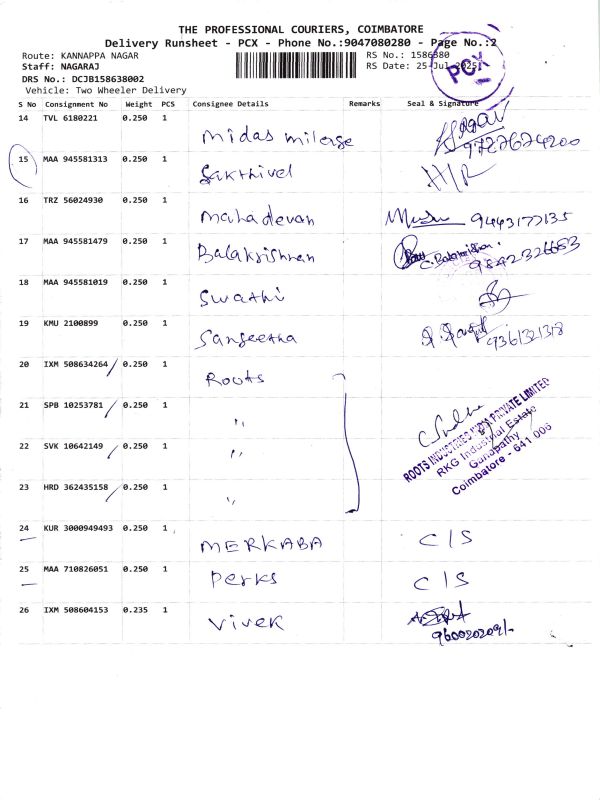 THE PROFESSIONAL COURIERS, COIMBATORE
Delivery Runsheet - PCX - Phone No.:9047080280 - Page No.:2
Route: KANNAPPA NAGAR RS No.: 1586380
Staff: NAGARAJ RS Date: 25-Jul-2025
PCX
DRS No.: DCJB158638002
Vehicle: Two Wheeler Delivery
S No Consignment No Weight PCS Consignee Details Remarks Seal & Signature
14 TVL 6180221 0.250 1 midas milerge
9727674200
15 MAA 945581313 0.250 1 Sakthivel H/R
16 TRZ 56024930 0.250 1 mahadevan 9443177135
17 MAA 945581479 0.250 1 Balakrishnan C. Balakrishnan 9842326653
18 MAA 945581019 0.250 1 Swathi
19 KMU 2100899 0.250 1 Sangeetha 9361321318
20 IXM 508634264 0.250 1 Roots
21 SPB 10253781 0.250 1 "
22 SVK 10642149 0.250 1 "
23 HRD 362435158 0.250 1 "
ROOTS INDUSTRIES INDIA PRIVATE LIMITED
RKG Industrial Estate
Ganapathy
Coimbatore - 641 006
24 KUR 3000949493 0.250 1 MERKABA C/S
25 MAA 710826051 0.250 1 Perks C/S
26 IXM 508604153 0.235 1 Vivek
9600202091-